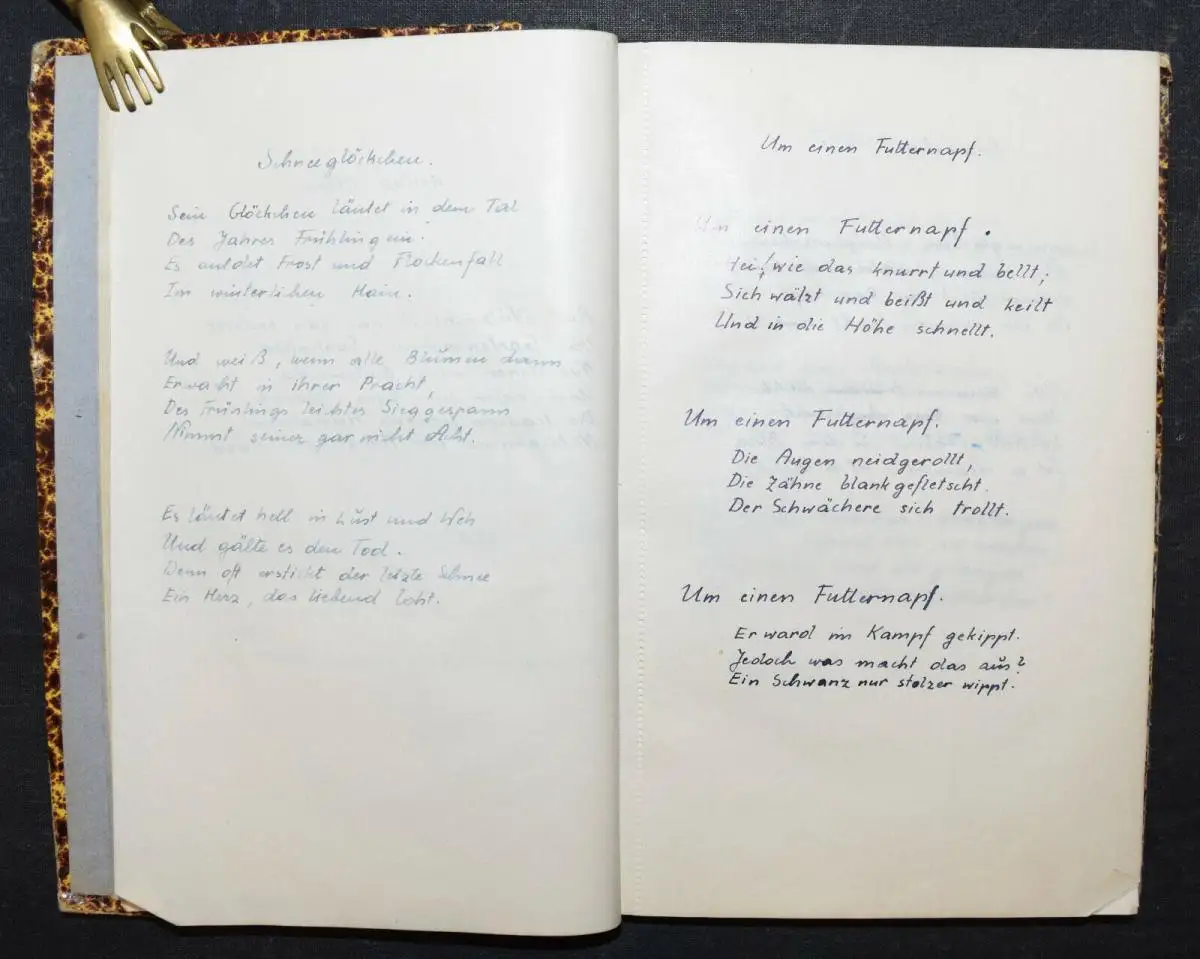 Schneeglöckchen.
Sein Glöckchen läutet in dem Tal
Des Jahres Frühling ein.
Es duldet Frost und Flockenfall
Im winterlichen Hain.
Und weiß, wenn alle Blumen dann
Erwacht in ihrer Pracht,
Des Frühlings leichtes Sieggespann
Nimmt seiner gar nicht Acht.
Es läutet hell in Lust und Weh
Und gälte es den Tod.
Denn oft erstickt der letzte Schnee
Ein Herz, das liebend loht.
Um einen Futternapf.
Um einen Futternapf.
Hei! wie das knurrt und bellt;
Sich wälzt und beißt und keilt
Und in die Höhe schnellt.
Um einen Futternapf.
Die Augen neidgerollt,
Die Zähne blankgefletscht.
Der Schwächere sich trollt.
Um einen Futternapf.
Er ward im Kampf gekippt.
Jedoch was macht das aus?
Ein Schwanz nur stolzer wippt.